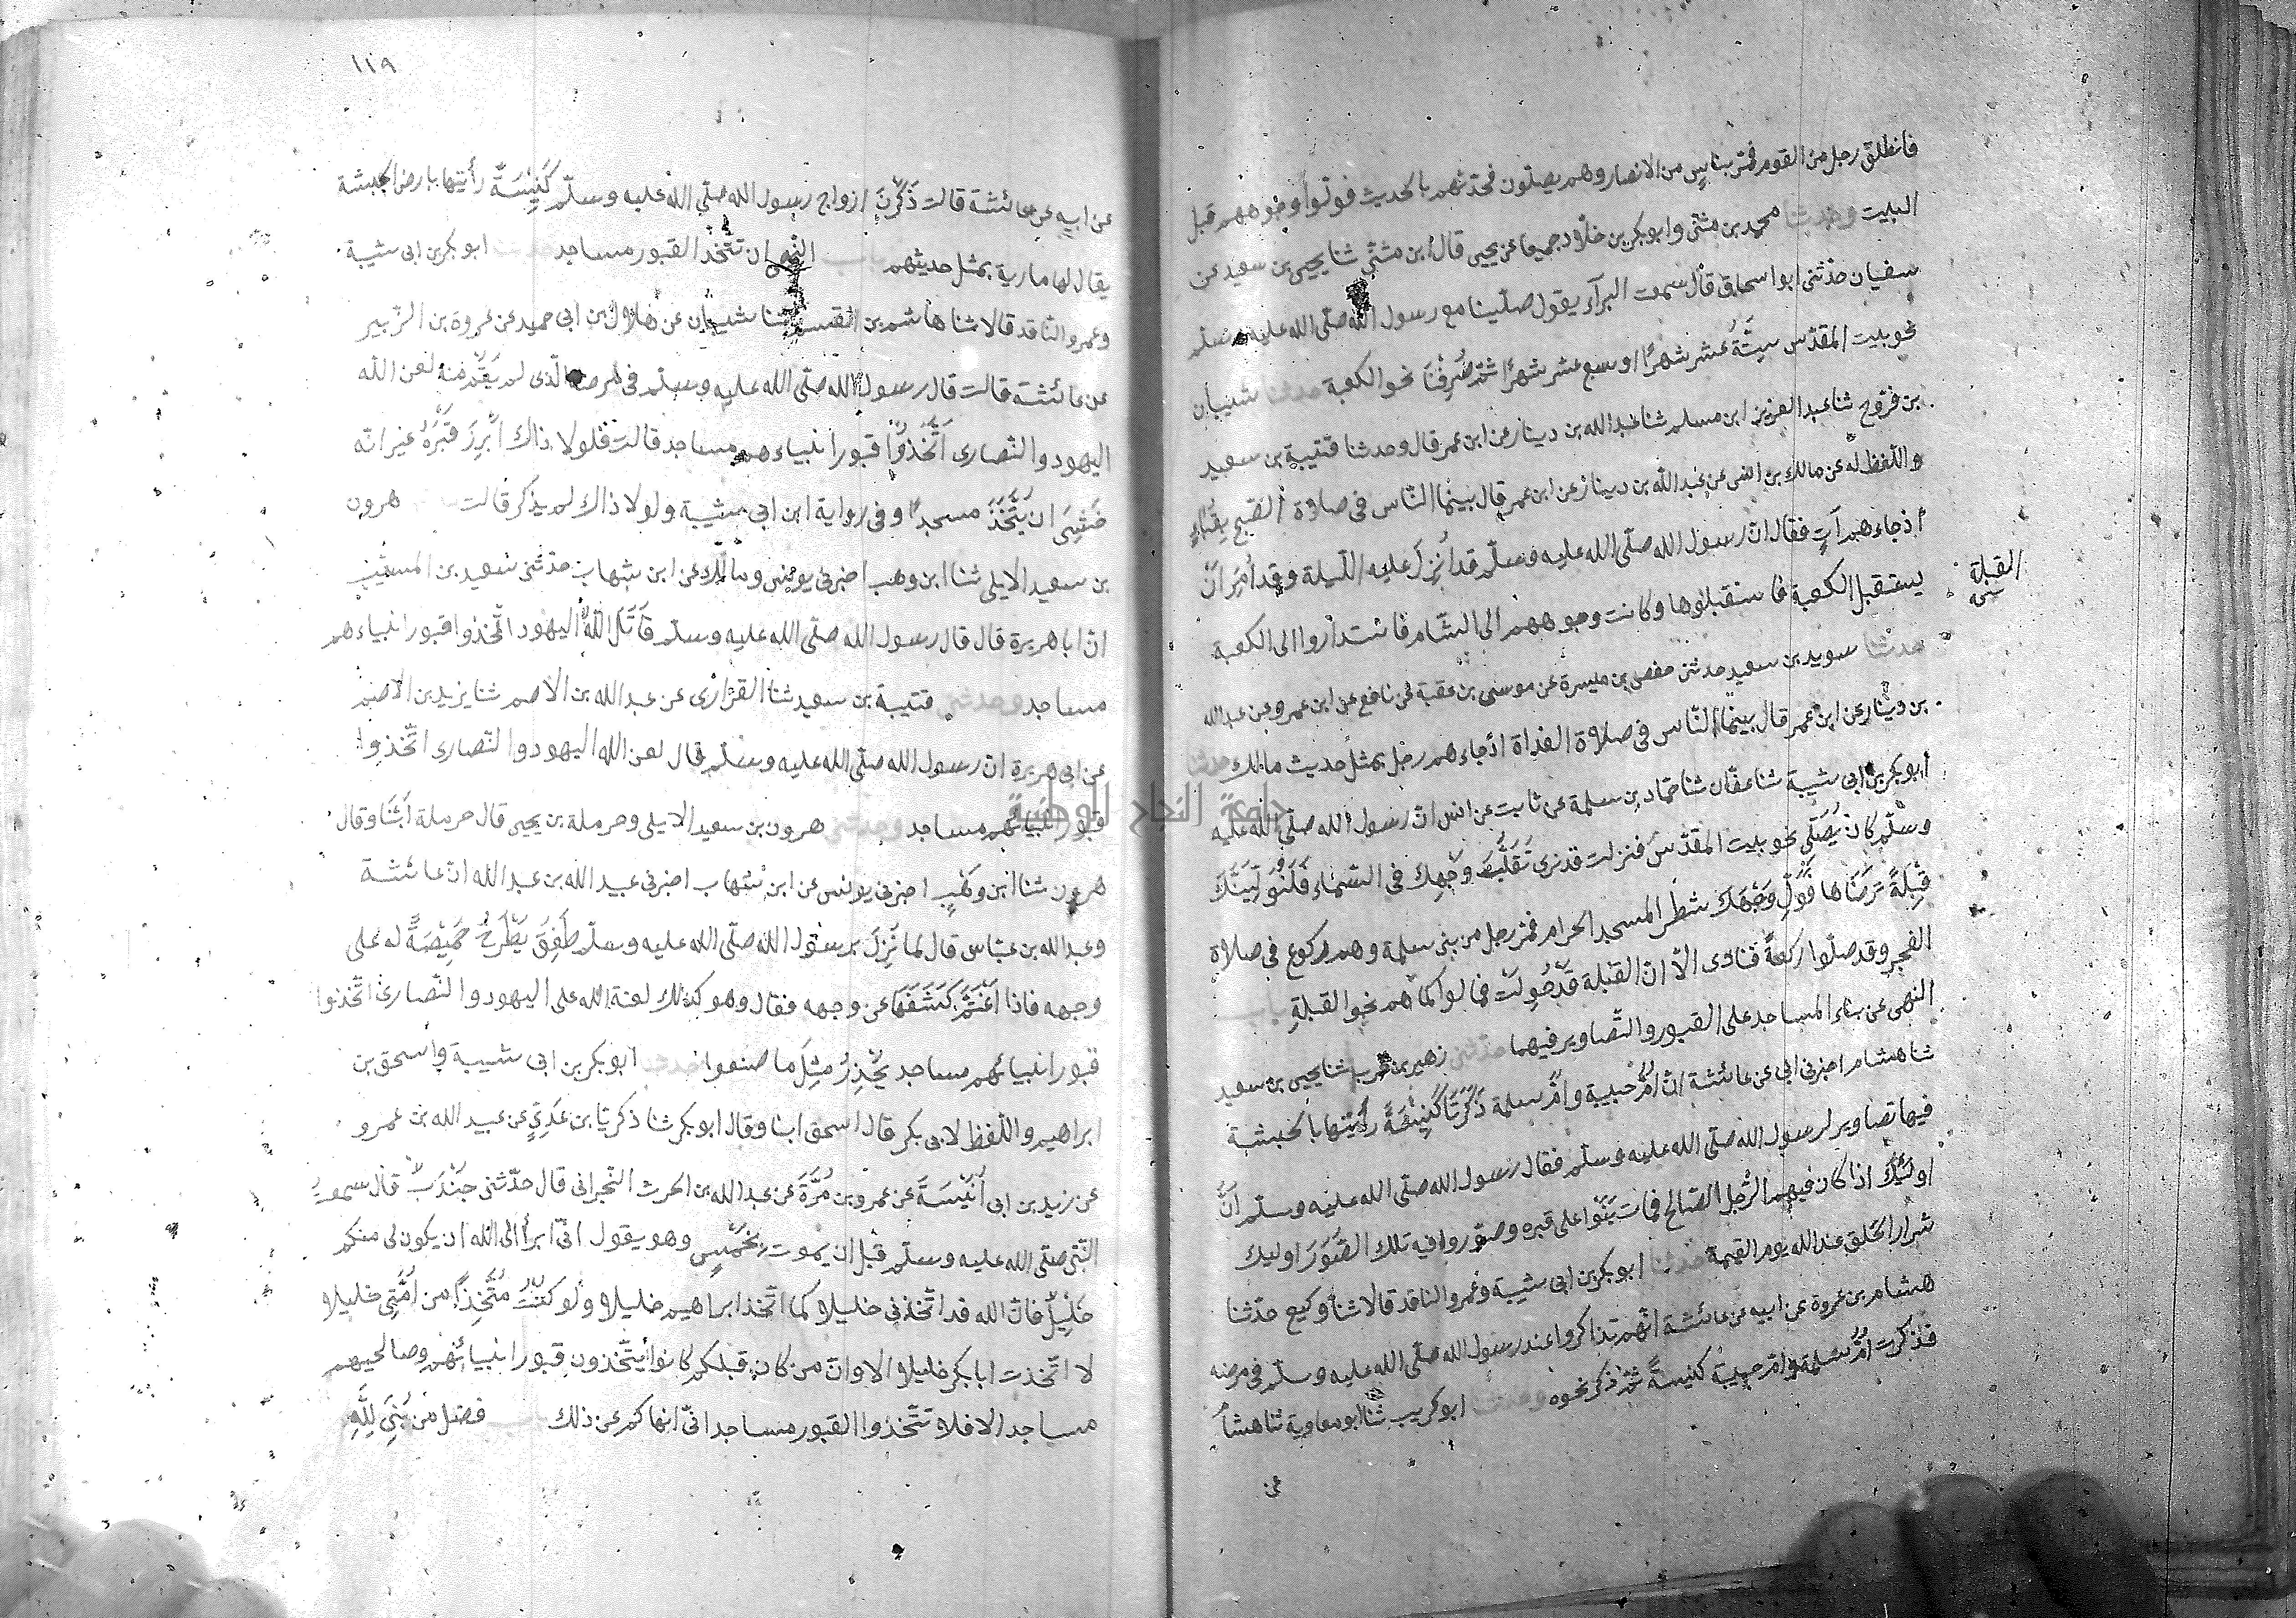 فانطلق رجل من القوم فمرّ بناسٍ من الانصار وهم يصلّون فحدّثهم بالحديث فولّوا وجوههم قبل
البيت وحدثنا محمد بن مثنّى وابو بكر بن خلّاد جميعا عن يحيى قال ابن مثنّى ثنا يحيى بن سعيد عن
سفيان حدّثني ابو اسحاق قال سمعت البرآء يقول صلّينا مع رسول الله صلّى الله عليه وسلّم
نحو بيت المقدّس ستّة عشر شهرًا او سبع عشر شهرًا ثمّ صُرِفْنا نحو الكعبة حدثنا شيبان
بن فرّوخ ثنا عبد العزيز ابن مسلم ثنا عبد الله بن دينار عن ابن عمر قال وحدثنا قتيبة بن سعيد
واللّفظ له عن مالك بن انس عن عبد الله بن دينار عن ابن عمر قال بينما النّاس في صلاة الصّبح بقُباءٍ
اذ جاءهم آتٍ فقال انّ رسول الله صلّى الله عليه وسلّم قد اُنزِل عليه اللّيلة وقد اُمِرَ اَنْ
يستقبل الكعبة فاستقبلوها وكانت وجوههم الى الشّام فاستداروا الى الكعبة
القبلة
حدثنا سويد بن سعيد حدثني حفص بن ميسرة عن موسى بن عقبة عن نافع عن ابن عمر وعن عبد الله
بن دينار عن ابن عمر قال بينما النّاس في صلاة الغداة اذ جاءهم رجل بمثل حديث مالك حدثنا
ابو بكر بن ابى شيبة ثنا عفّان ثنا حمّاد بن سلمة عن ثابت عن انس انّ رسول الله صلّى الله عليه
وسلّم كان يُصَلّى نحو بيت المقدّس فنزلت قد نرى تَقَلُّبَ وَجْهِكَ في السّماء فَلَنُوَلِّيَنَّكَ
قِبْلَةً تَرضاها فَوَلِّ وَجْهَكَ شطر المسجد الحرام فمرّ رجل من بنى سلمة وهم ركوع في صلاة
الفجر وقد صلّوا ركعةً فنادى الَا انّ القبلة قد حُوِلَتْ فمالوا كما هم نحو القبلةِ باب
النهى عن بناء المساجد على القبور والتّصاوير فيهما حدّثني زهير بن حرب ثنا يحيى بن سعيد
ثنا هشام اخبرني ابى عن عائشة انّ امّ حبيبة وامّ سلمة ذَكَرَتَا كَنِيْسَةً رأيتها بالحبشة
فيها تصاوير لرسول الله صلّى الله عليه وسلّم فقال رسول الله صلّى الله عليه وسلّم اَنَّ
اولئِكَ اذا كان فيهم الرّجل الصّالح فمات بَنَوْا على قبره وصوّروا فيه تلك الصُّوَرَ اوليك
شرار الخلق عند الله يوم القيمة حدثنا ابو بكر بن ابى شيبة وعمرو الناقد قالا ثنا وكيع حدّثنا
هشام بن عروة عن ابيه عن عائشة انّهم تذاكروا عند رسول الله صلّى الله عليه وسلّم في مرضه
فذكرت امّ سلمة وامّ حبيبة كنيسةً ثمّ ذكر نحوه وحدثنا ابو كريب ثنا ابو معاوية ثنا هشام
عن
١١٩
عن ابيه عن عائشة قالت ذَكَرْنَ ازواج رسول الله صلّى الله عليه وسلّم كَنِيْسَةً رأيتها بارض الحبشة
يقال لها مارية بمثل حديثهم باب النّهى ان تتّخذ القبور مساجد حدثنا ابو بكر بن ابى شيبة
وعمرو النّاقد قالا ثنا هاشم بن القسم ثنا شيبان عن هلال بن ابى حميد عن عروة بن الزّبير
عن عائشة قالت قال رسول الله صلّى الله عليه وسلّم في مرضه الّذى لم يَقُم منه لعن الله
اليهود والنّصارى اتَّخَذُوْا قبور انبياءهم مساجد قالت فلولا ذاك اُبْرِزَ قَبْرُهُ غير انّه
خَشِيَ ان يُتَّخَذَ مسجدًا وفى رواية ابن ابى شيبة ولولا ذاك لم يذكر قالت حدثنا هرون
بن سعيد الايلى ثنا ابن وهب اخبرنى يونس ومالك عن ابن شهاب حدّثنى سعيد بن المسيّب
انّ ابا هريرة قال قال رسول الله صلّى الله عليه وسلّم قاتَلَ اللّٰهُ اليهود اتّخذوا قبور انبياءهم
مساجد وحدثنى قتيبة بن سعيد ثنا الفزارى عن عبد الله بن الاصم ثنا يزيد بن الاصم
عن ابى هريرة انّ رسول الله صلّى الله عليه وسلّم قال لعن الله اليهود والنّصارى اتّخذوا
قبور انبيائهم مساجد وحدثنى هرون بن سعيد الايلى وحرملة بن يحيى قال حرملة اَبْنَا وقال
هرون ثنا ابن وهْبٍ اخبرنى يونس عن ابن شهاب اخبرنى عبيد الله بن عبد الله انّ عائشة
وعبد الله بن عبّاس قال لما نَزِلَ برسول الله صلّى الله عليه وسلّم طَفِقَ يَطْرَحُ خَمِيْصَةً له على
وجهه فاذا اغْتَمَّ كَشَفَهَا عن وجهه فقال وهو كذلك لعنة الله على اليهود والنّصارى اتّخذوا
قبور انبيائهم مساجد يُحَذِرُ مِثْلَ ما صنعوا حدثنا ابو بكر بن ابى شيبة واسحق بن
ابراهيم واللّفظ لابى بكر قال اسحق ابنا وقال ابو بكر ثنا ذكريّا بن عَدِيٍّ عن عبيد الله بن عمرو
عن زيد بن ابى اُنَيْسَةَ عن عمرو بن مُرَّةَ عن عبد الله بن الحرث النّجرانى قال حدّثنى جُنْدَبٌ قال سمعت
النّبى صلّى الله عليه وسلّم قبل ان يموت بِخَمْسٍ وهو يقول انّى ابرأ الى الله ان يكون لى منكم
خَلِيْلٌ فانّ الله قد اتّخذنى خليلا كما اتّخذ ابراهيم خليلا ولو كُنْتُ مُتَّخِذًا من امَّتى خليلا
لا اتّخذت ابا بكر خليلا الا وانّ من كان قبلكم كانوا يتّخذون قبور انبيائهم وصالحيهم
مساجد الا فلا تتّخذوا القبور مساجد انّى انهاكم عن ذلك فضل من بُنِيَ لِلّٰهِ
جامعة النجاح الوطنية